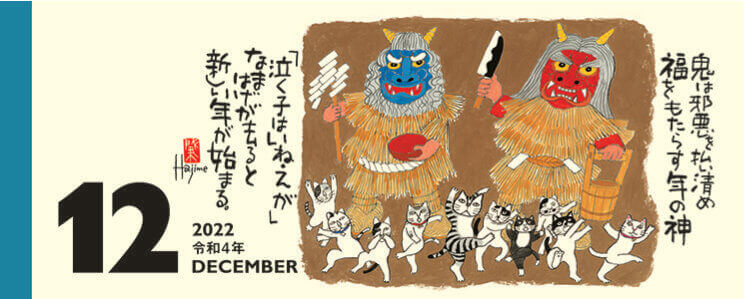 鬼は邪悪を払い清め
福をもたらす年の神
「泣く子はいねえが」
なまはげが去ると
新しい年が始まる。
Hajime
12
2022
令和4年
DECEMBER